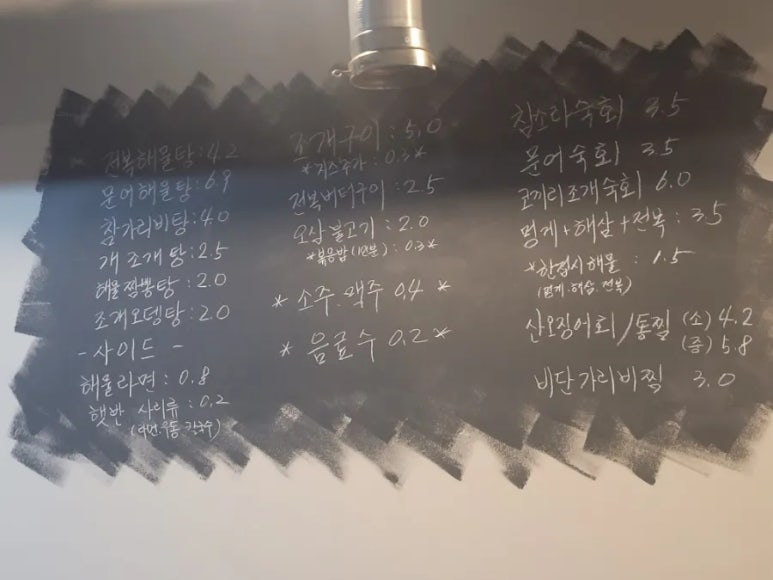 전복해물탕:4.2
문어해물탕:6.9
참가리비탕:4.0
개조개탕:2.5
해물짬뽕탕:2.0
조개오뎅탕:2.0
-사이드-
해물라면:0.8
햇반 사리류:0.2
(라면.우동.칼국수)
조개구이:5.0
*치즈추가:0.3*
전복버터구이:2.5
오삼불고기:2.0
*볶음밥(1인분):0.3*
*소주.맥주 0.4*
*음료수 0.2*
참소라숙회 3.5
문어숙회 3.5
코끼리조개숙회 6.0
멍게+해삼+전복:3.5
*한접시해물:1.5
(멍게.해삼.전복)
산오징어회/통찜 (소)4.2
(중)5.8
비단가리비찜 3.0